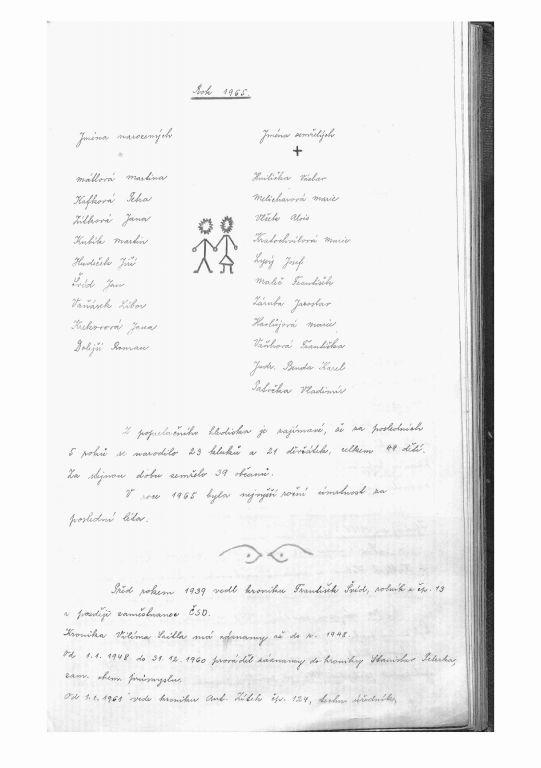 Rok 1965.
Jména narozených
Jména zemřelých
+
Mátlová Martina
Kafková Jitka
Zítková Jana
Kubík Martin
Hudeček Jiří
Švéd Jan
Vaňásek Libor
Krekovová Jana
Dolejší Roman
Hnilička Václav
Melicharová Marie
Vlček Alois
Kratochvílová Marie
Lysý Josef
Maleč František
Záruba Jaroslav
Havlůjová Marie
Vaňková Františka
Judr. Benda Karel
Patočka Vladimír
Z populačního hlediska je zajímavé, že za posledních
5 roků se narodilo 23 kluků a 21 děvčátek, celkem 44 dětí.
Za stejnou dobu zemřelo 39 občanů.
V roce 1965 byla nejvyšší roční úmrtnost za
poslední léta.
Před rokem 1939 vedl kroniku František Švéd, rolník z čp. 13
a později zaměstnanec ČSD.
Kronika Viléma má záznamy až do r. 1948.
Od 1.1.1948 do 31.12.1960 prováděl záznamy do kroniky Stanislav Peterka,
zam. chem. průmyslu.
Od 1.1.1961 vede kroniku Ant. Zítek čp. 124, techn. úředník,